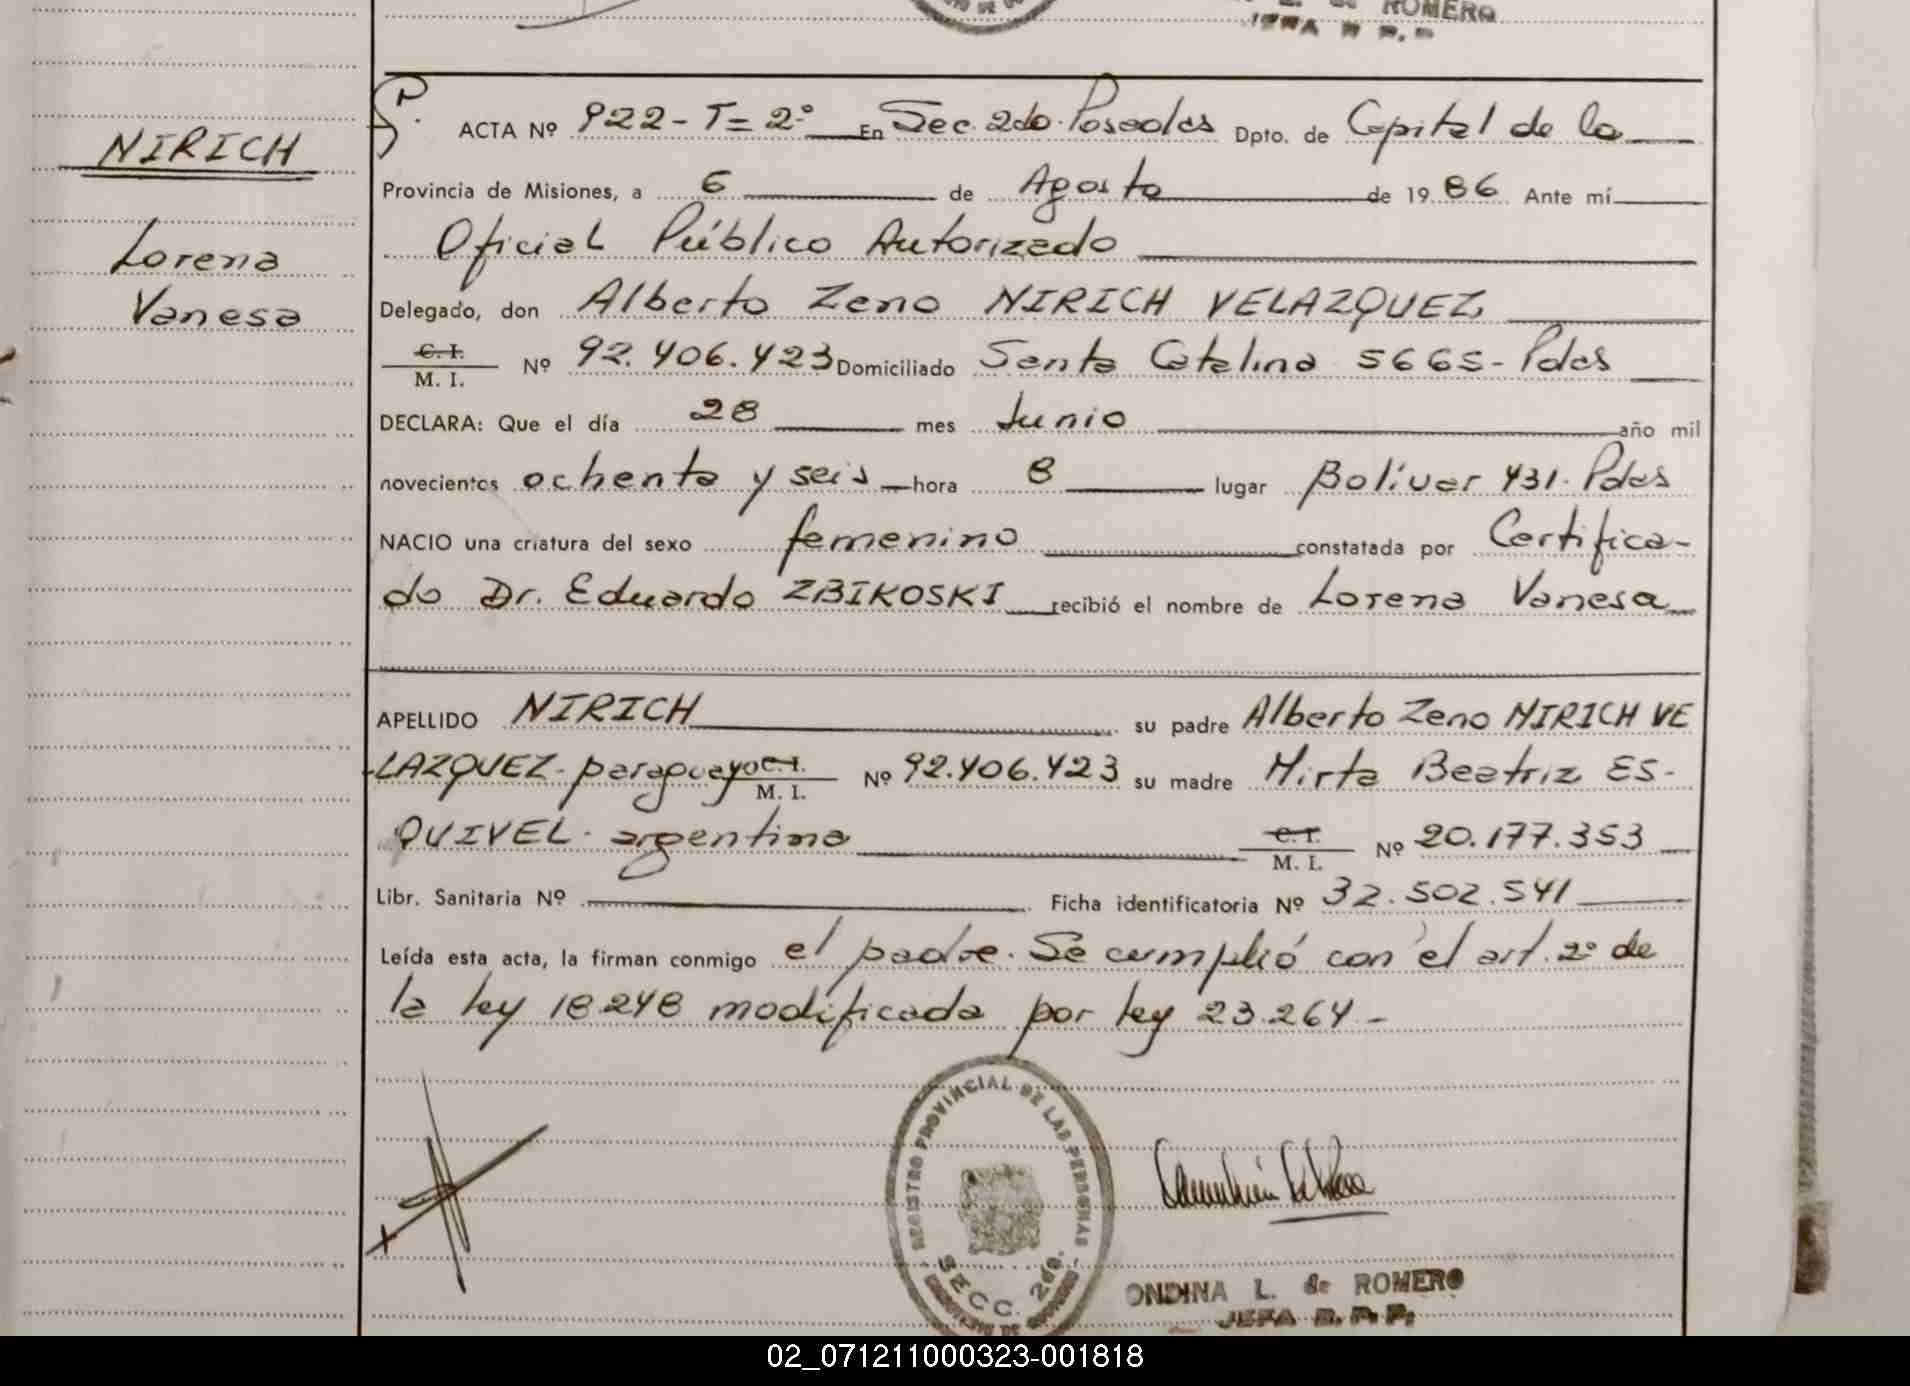 L. de ROMERO
JEFA R P. P
NIRICH
Lorena
Vanesa
ACTA Nº 922 - T= 2º En Sec. 2do. Posadas Dpto. de Capital de la
Provincia de Misiones, a 6 de Agosto de 19 86 Ante mí
Oficial Público Autorizado
Delegado, don Alberto Zeno NIRICH VELAZQUEZ
C. I.
M. I. Nº 92.406.423 Domiciliado Santa Catalina 5665 - Pdas
DECLARA: Que el día 28 mes Junio año mil
novecientos ochenta y seis hora 8 lugar Bolívar 431. Pdas
NACIO una criatura del sexo femenino constatada por Certifica-
do Dr. Eduardo ZBIKOSKI recibió el nombre de Lorena Vanesa
APELLIDO NIRICH su padre Alberto Zeno NIRICH VE
LAZQUEZ - paraguayo C. I. M. I. Nº 92.406.423 su madre Mirta Beatriz ES-
QUIVEL - argentina C. I. M. I. Nº 20.177.353
Libr. Sanitaria Nº Ficha identificatoria Nº 32.502.541
Leída esta acta, la firman conmigo el padre. Se cumplió con el art. 2º de
la ley 18.248 modificada por ley 23.264 -
REGISTRO PROVINCIAL DE LAS PERSONAS
SECC. 2da.
ONDINA L. de ROMERO
JEFA R. P. P.
02_071211000323-001818